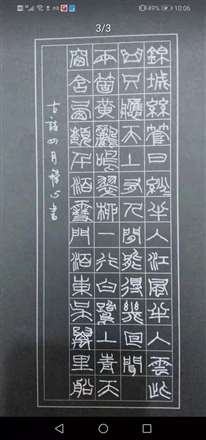 10:06
3/3
錦城絲管日紛半入江風半入雲此
曲只應天上有人間能得幾回聞
兩箇黃鸝鳴翠柳一行白鷺上青天
窗含西嶺千秋雪門泊東吳萬里船
古詩四月心書